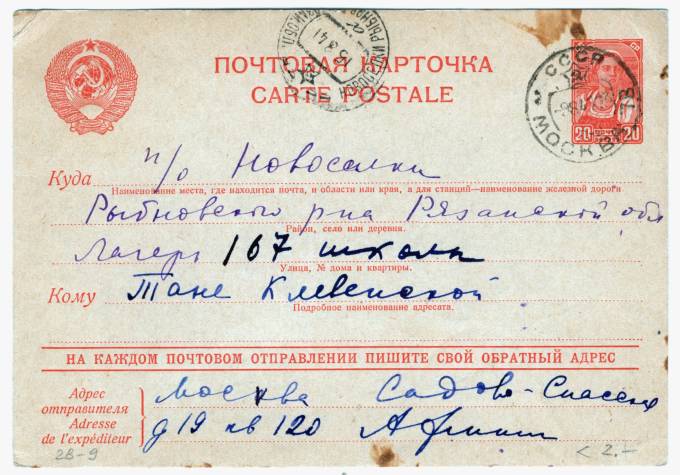 ПОЧТОВАЯ КАРТОЧКА
CARTE POSTALE
СССР
МОСКВА
20 20
Куда п/о Новоселки
Наименование места, где находится почта, и области или края, а для станций—наименование железной дороги
Рыбновского р-на Рязанской обл
Район, село или деревня.
Лагерь 167 школы
Улица, № дома и квартиры.
Кому Тане Клевенской
Подробное наименование адресата.
НА КАЖДОМ ПОЧТОВОМ ОТПРАВЛЕНИИ ПИШИТЕ СВОЙ ОБРАТНЫЙ АДРЕС
Адрес отправителя
Adresse de l'expéditeur
Москва Садово-Спасская
д 19 кв 120
28-9
< 2.-